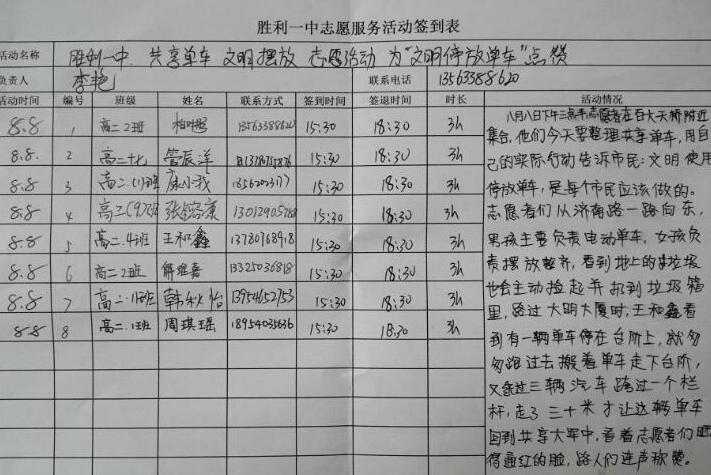 胜利一中志愿服务活动签到表
活动名称 胜利一中 共享单车 文明摆放 志愿活动 为“文明停放单车”点赞
负责人 李艳 联系电话 13563388620
活动时间 编号 班级 姓名 联系方式 签到时间 签退时间 时长 活动情况
8.8 1 高二2班 13563388620 15:30 18:30 3h
8.8. 2 高二十七 管辰洋 15:30 18:30 3h
8.8 3 高二.(1)班 15:30 18:30 3h
8.8 4 高二(9)班 15:30 18:30 3h
8.8 5 高二.4班 王和鑫 13780768918 15:30 18:30 3h
8.8 6 高二2班 解瑶嘉 13325036818 15:30 18:30 3h
8.8 7 高二 韩秋怡 13954652753 15:30 18:30 3h
8.8 8 高二 周琪瑶 18954035636 15:30 18:30 3h
八月八日下午三点半志愿者在百大天桥附近
集合,他们今天要整理共享单车,用自
己的实际行动告诉市民:文明使用
停放单车,是每个市民应该做的。
志愿者们从济南路一路向东,
男孩主要负责电动单车,女孩负
责摆放整齐,看到地上的垃圾
也会主动捡起并扔到垃圾箱
里,路过大明大厦时,王和鑫看
到有一辆单车停在台阶上,就匆
匆跑过去搬着单车走下台阶,
又绕过三辆汽车跨过一个栏
杆,走了三十米才让这辆单车
回到共享大军中,看着志愿者们晒
得通红的脸,路人们连声称赞。